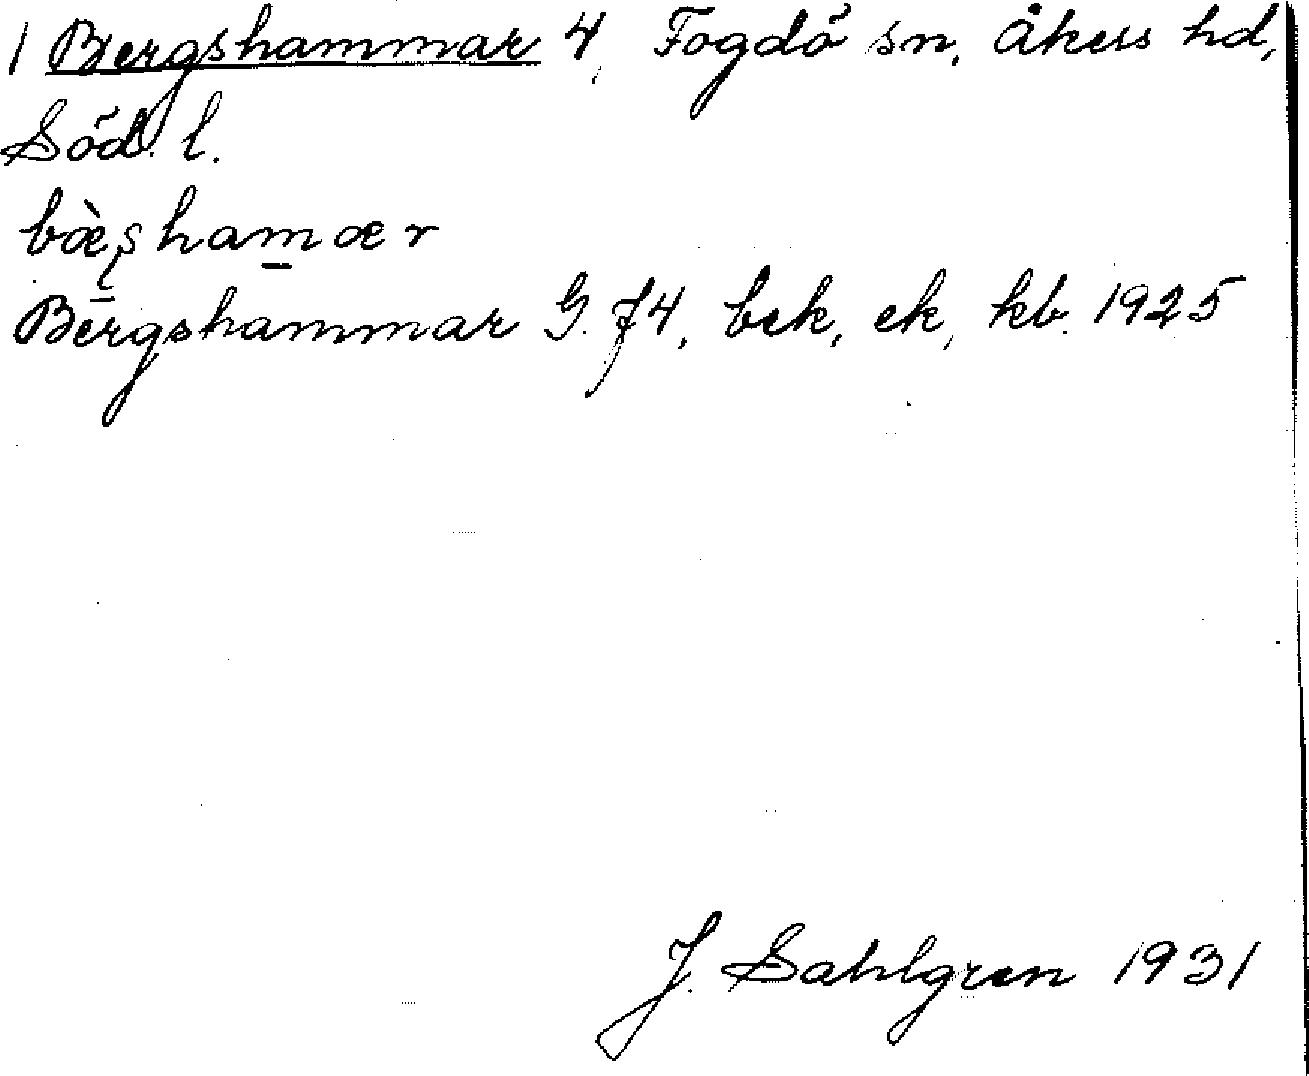 1 Bergshammar 4, Fogdö sn, Åkers hd,
Söd. l.
bæ̀ʂham̲ær
Bērgshammar G. J4, bek, ek, kb. 1925
J. Sahlgren 1931